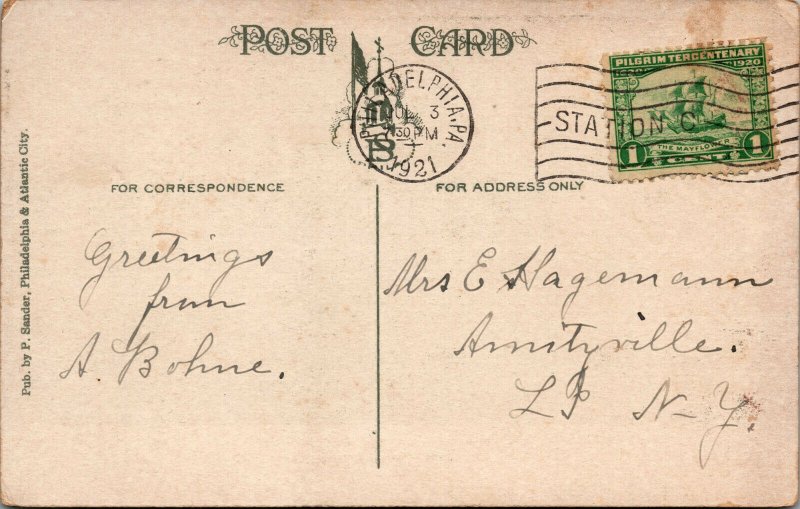 POST CARD
PHILADELPHIA, PA.
3
30 PM
1921
STATION C
PILGRIM TERCENTENARY
1620 1920
THE MAYFLOWER
1 CENT 1
PS
FOR CORRESPONDENCE
FOR ADDRESS ONLY
Pub. by P. Sander, Philadelphia & Atlantic City.
Greetings
from
A Bohne.
Mrs E Hagemann
Amityville.
N-Y.